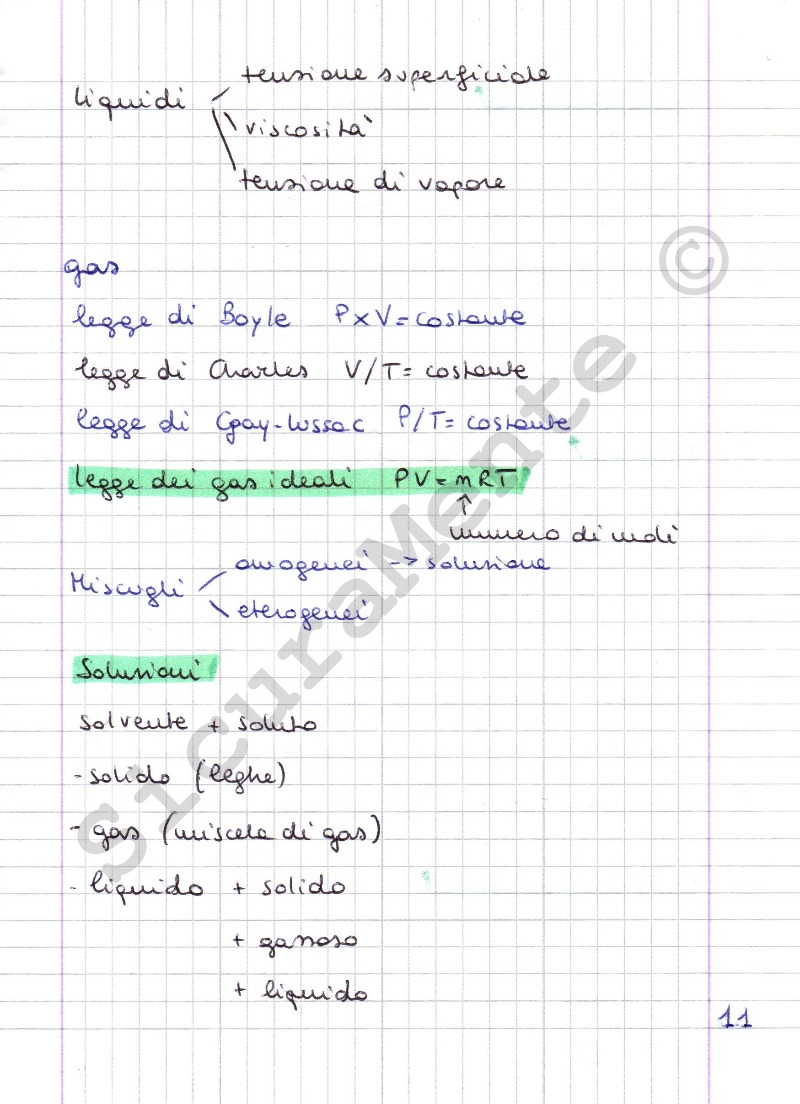 liquidi
tensione superficiale
viscosità
tensione di vapore
gas
legge di Boyle P x V = costante
legge di Charles V/T = costante
legge di Gay-Lussac P/T = costante
legge dei gas ideali PV = nRT
↑
numero di moli
Miscugli
omogenei -> soluzione
eterogenei
Soluzioni
solvente + soluto
- solido (leghe)
- gas (miscela di gas)
- liquido + solido
+ gassoso
+ liquido
11
SicuraMente ©